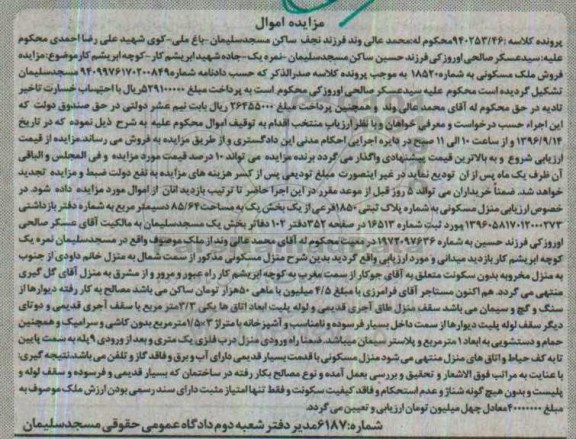 مزایده اموال
پرونده کلاسه :۹۴۰۲۵۳/۴۶محکوم له:محمد عالی وند فرزند نجف ساکن مسجدسلیمان -باغ ملی-کوی شهید علی رضا احمدی محکوم
علیه:سیدعسکر صالحی اوروزکی فرزند حسین ساکن مسجدسلیمان -نمره یک-جاده شهید ابریشم کار-کوچه ابریشم کارموضوع:مزایده
فروش ملک مسکونی به شماره۱۸۵۲۰ به موجب پرونده کلاسه صدرالذکر که حسب دادنامه شماره۹۴۰۹۹۷۶۱۷۰۲۰۰۸۴۹ مسجدسلیمان
تشکیل گردیده است محکوم علیه سیدعسکر صالحی اوروزکی محکوم است به پرداخت مبلغ ۵۲۹۱۰۰۰۰۰ریال با احتساب خسارت تاخیر
تادیه در حق محکوم له آقای محمد عالی وند و همچنین پرداخت مبلغ ۲۶۴۵۵۰۰۰ ریال بابت نیم عشر دولتی در حق صندوق دولت که
این اجراء حسب درخواست و معرفی خواهان و با نظر ارزیاب منتخب اقدام به توقیف اموال محکوم علیه به شرح ذیل نموده که در تاریخ
۱۳۹۶/۹/۱۳ و از ساعت ۱۰ الی ۱۱ صبح در دایره اجرایی احکام مدنی این دادگستری و از طریق مزایده به فروش می رساند.مزایده از قیمت
ارزیابی شروع و به بالاترین قیمت پیشنهادی واگذار می گردد برنده مزایده می تواند ۱۰ درصد قیمت مورد مزایده و فی المجلس و الباقی
آن ظرف یک ماه پس از ان تودیع نماید در غیر اینصورت مبلغ تودیعی پس از کسر هزینه های مزایده به نفع دولت ضبط و مزایده تجدید
خواهد شد. ضمنا خریداران می تواند ۵ روز قبل از موعد مقرر در این اجرا حاضر تا ترتیب بازدید اتان از اموال مورد مزایده داده شود. در
خصوص ارزیابی منزل مسکونی به شماره پلاک ثبتی ۱۸۵۰فرعی از یک بخش یک به مساحت۸۵/۶۴ دسیمتر مربع به شماره دفتر بازداشتی
۱۳۹۶۰۵۸۱۷۰۱۲۰۰۰۲۷۳ مورد ثبت شماره ۱۶۵۱۳ در صفحه ۳۵۲دفتر ۱۰۲ دفاتر بخش یک مسجدسلیمان به مالکیت آقای عسکر صالحی
اوروزکی فرزند حسین به شماره ۱۹۷۲۰۹۷۶۳۶ در معیت محکوم له آقای محمد عالی وند از ملک موصوف واقع در مسجدسلیمان نمره یک
کوچه ابریشم کار بازدید میدانی و مورد ارزیابی واقع گردید بدین شرح منزل مسکونی مذکور از سمت شمال به منزل خانم داودی از جنوب
به منزل مخروبه بدون سکونت متعلق به آقای جوکار از سمت مغرب به کوچه ابریشم کار راه عبور و مرور و از مشرق به منزل آقای گل گیری
منتهی می گردد هم اکنون مستاجر آقای فرامرزی با مبلغ ۴/۵ میلیون با ماهی ۵۰هزار تومان ساکن می باشد مصالح به کار رفته دیوارها از
سنگ و گچ و سیمان می باشد سقف منزل طاق آجری قدیمی و لوله پلیت ابعاد اتاق ها یکی ۳/۳متر مربع با سقف آجری قدیمی و دوتای
دیگر سقف لوله پلیت دیوارها از سمت داخل بسیار فرسوده و نامناسب و آشپزخانه با متراژ ۳*۱/۵مترمربع بدون کاشی و سرامیک و همچنین
حمام و دستشویی به ابعاد ۱ مترمربع و پلاستر سیمان میباشد. ضمنا راه ورودی منزل درب فلزی یک متری و بعد از ورودی ۹پله به سمت پایین
تا به کف حیاط و اتاق های منزل منتهی می شود منزل مسکونی با قدمت بسیار قدیمی دارای آب و برق و فاقد گاز و تلفن می باشد نتیجه گیری:
با عنایت به مراتب فوق الاشعار و تحقیق و بررسی بعمل آمده و نوع مصالح بکار رفته در ساختمان که بسیار قدیمی و فرسوده و سقف لوله و
پلیست و بدون هیچ گونه شناژ و عدم استحکام و فاقد کیفیت سکونت و فقط تنها امتیاز مثبت دارای سند رسمی بودن ارزش ملک موصوف به
مبلغ ۴۰۰۰۰۰۰۰ معادل چهل میلیون تومان ارزیابی و تعیین می گردد.
شماره:۶۱۸۷مدیر دفتر شعبه دوم دادگاه عمومی حقوقی مسجدسلیمان